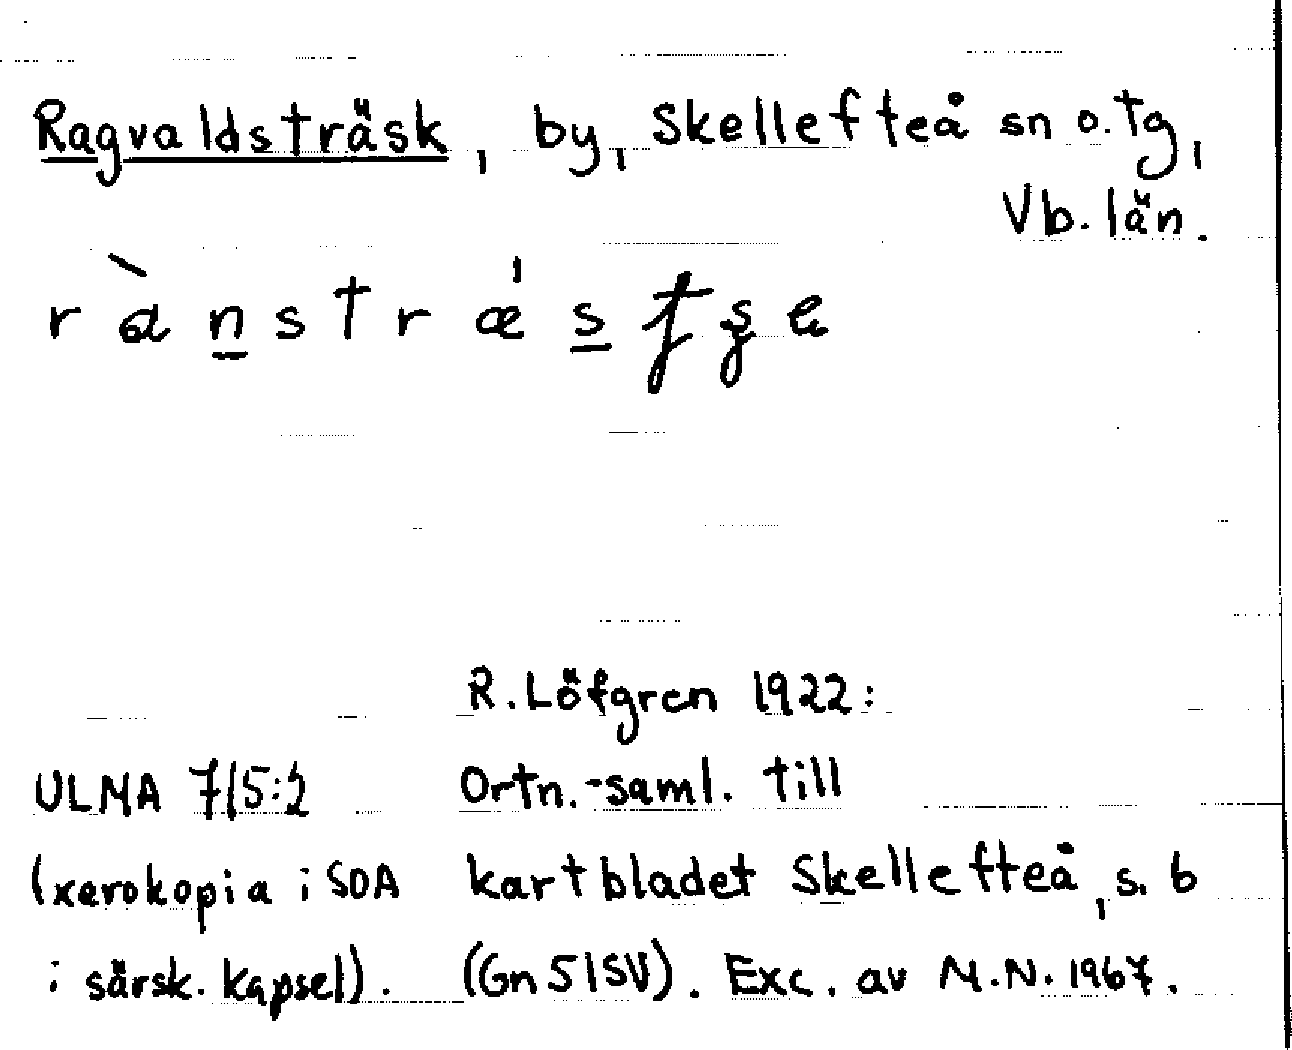 Ragvaldsträsk, by, Skellefteå sn o. tg,
Vb. län.
R. Löfgren 1922:
ULMA 715:2 Ortn.-saml. till
(xerokopia i SOA kartbladet Skellefteå, s. 6
i särsk. kapsel). (Gn 51SV). Exc. av M.N. 1967.